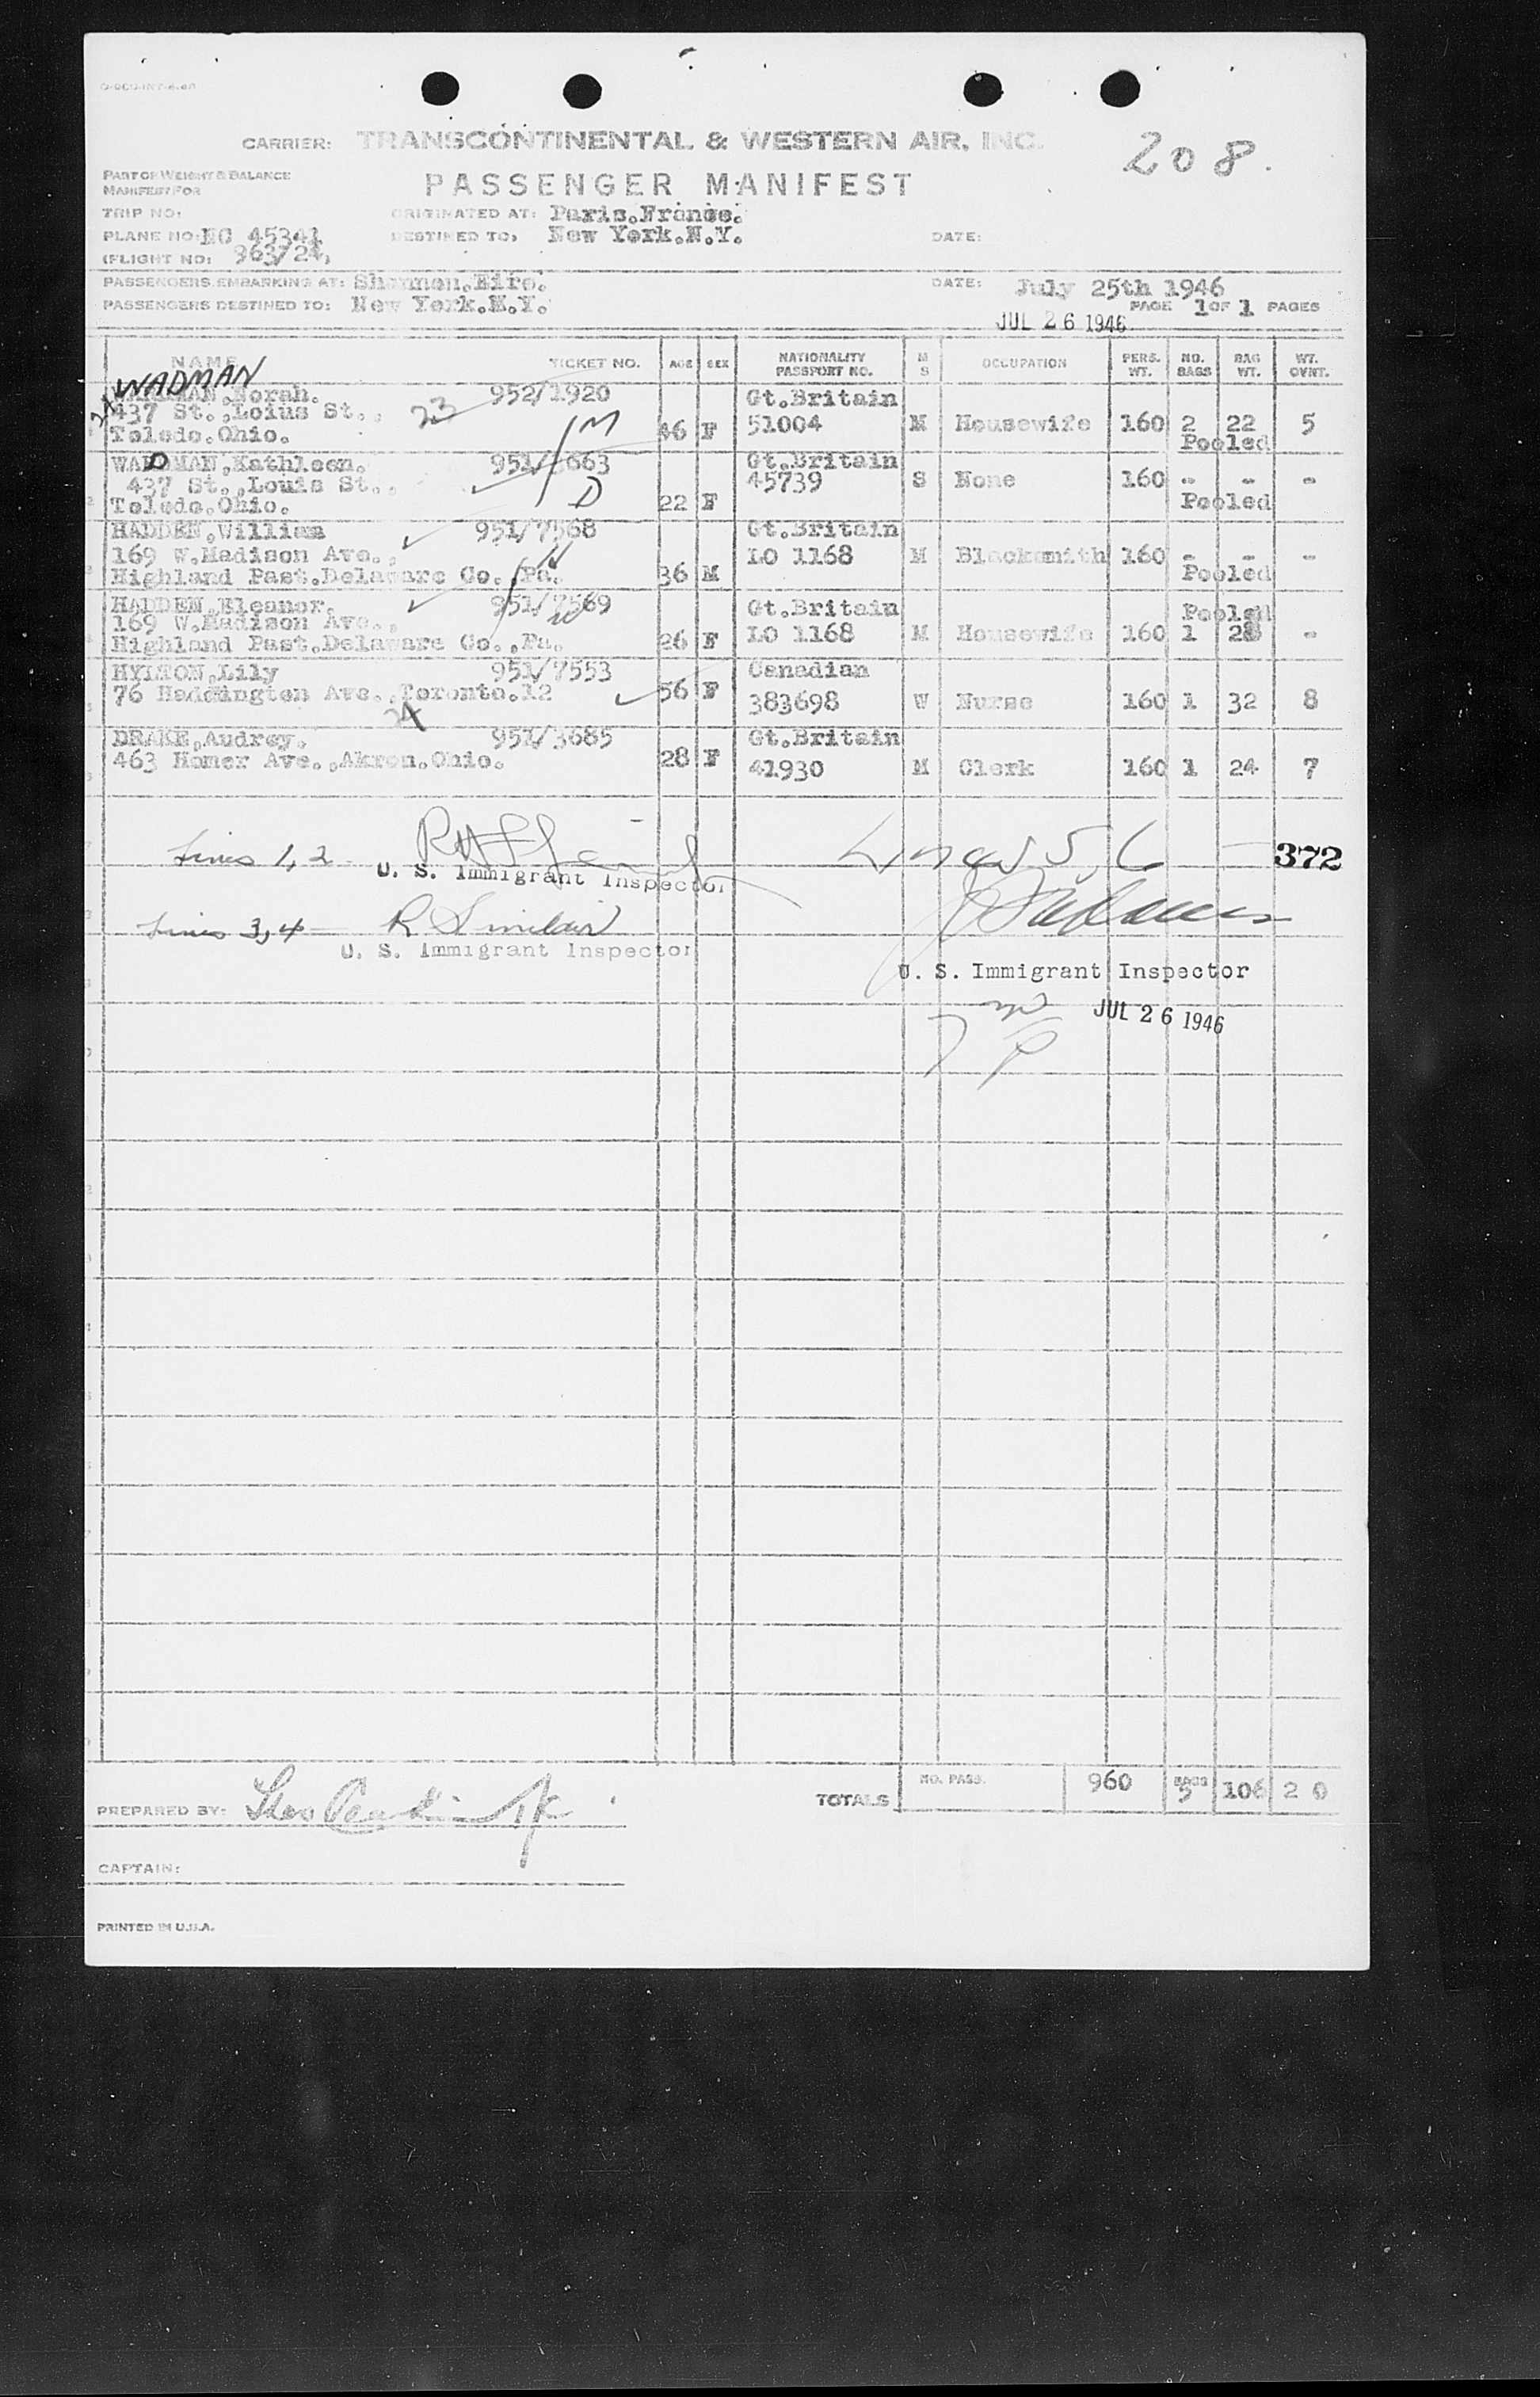 CARRIER: TRANSCONTINENTAL & WESTERN AIR, INC.
208.
PART OF WEIGHT & BALANCE
MANIFEST FOR
PASSENGER MANIFEST
TRIP NO:
ORIGINATED AT: Paris.France.
PLANE NO: NC 45341
DESTINED TO: New York.N.Y.
DATE:
(FLIGHT NO: 963/24)
PASSENGERS EMBARKING AT: Shannon.Eire.
DATE: July 25th 1946
PASSENGERS DESTINED TO: New York.N.Y.
PAGE 1 OF 1 PAGES
JUL 26 1946
NAME TICKET NO. AGE SEX NATIONALITY PASSPORT NO. M S OCCUPATION PERS. WT. NO. BAGS BAG WT. WT. OVNT.
WADMAN
Norah. 952/1920 Gt.Britain
437 St.,Loius St., 23
Toledo.Ohio. 46 F 51004 M Housewife 160 2 22 5
Pooled
M
WADMAN,Kathleen. 951/3663 Gt.Britain
437 St.,Louis St., 45739 S None 160 - - -
D
Toledo.Ohio. 22 F Pooled
HADDEN,William 951/7568 Gt.Britain
169 W.Madison Ave., LO 1168 M Blacksmith 160 - - -
Highland Past.Delaware Co.,Pa. 36 M Pooled
HADDEN,Eleanor. 951/7569 Gt.Britain Pooled
169 W.Madison Ave.,
Highland Past.Delaware Co.,Pa. 26 F LO 1168 M Housewife 160 1 28 -
HYLTON,Lily 951/7553 Canadian
76 Haddington Ave.,Toronto.12 56 F 383698 W Nurse 160 1 32 8
24
DRAKE,Audrey. 951/3685 Gt.Britain
463 Homer Ave.,Akron.Ohio. 28 F 41930 M Clerk 160 1 24 7
Lines 1, 2
U. S. Immigrant Inspector
Lines 5, 6
372
Lines 3, 4 R Sinclair
U. S. Immigrant Inspector
U. S. Immigrant Inspector
JUL 26 1946
TOTALS NO. PASS. 960 BAGS 5 106 20
PREPARED BY:
CAPTAIN:
PRINTED IN U.S.A.